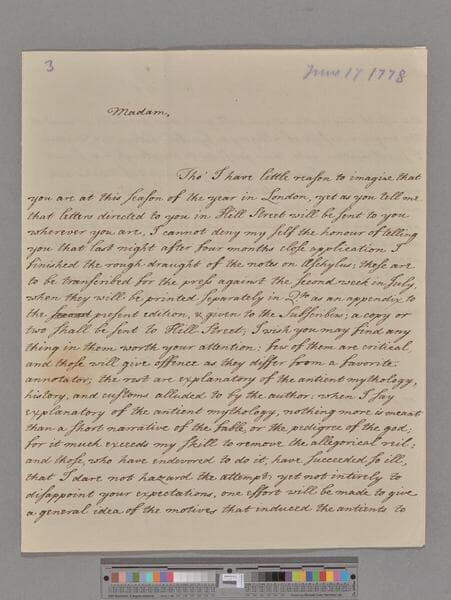 3
June 17 1778
Madam,
Tho' I have little reason to imagine that
you are at this season of the year in London, yet as you tell me
that letters directed to you in Hill Street will be sent to you
wherever you are, I cannot deny my self the honour of telling
you that last night after four months close application I
finished the rough draught of the notes on Æschylus; these are
to be transcribed for the press against the second week in July,
when they will be printed separately in Qto as an appendix to
the present edition, & given to the Subscribers; a copy or
two shall be sent to Hill Street; I wish you may find any
thing in them worth your attention: few of them are critical,
and those will give offence as they differ from a favorite
annotator; the rest are explanatory of the antient mythology,
history, and customs alluded to by the author: when I say
explanatory of the antient mythology, nothing more is meant
than a short narrative of the fable, or the pedigree of the god;
for it much exceeds my skill to remove the allegorical veil;
and those, who have endevored to do it, have succeeded so ill,
that I dare not hazard the attempt; yet not intirely to
disappoint your expectations, one effort will be made to give
a general idea of the motives that induced the antients to